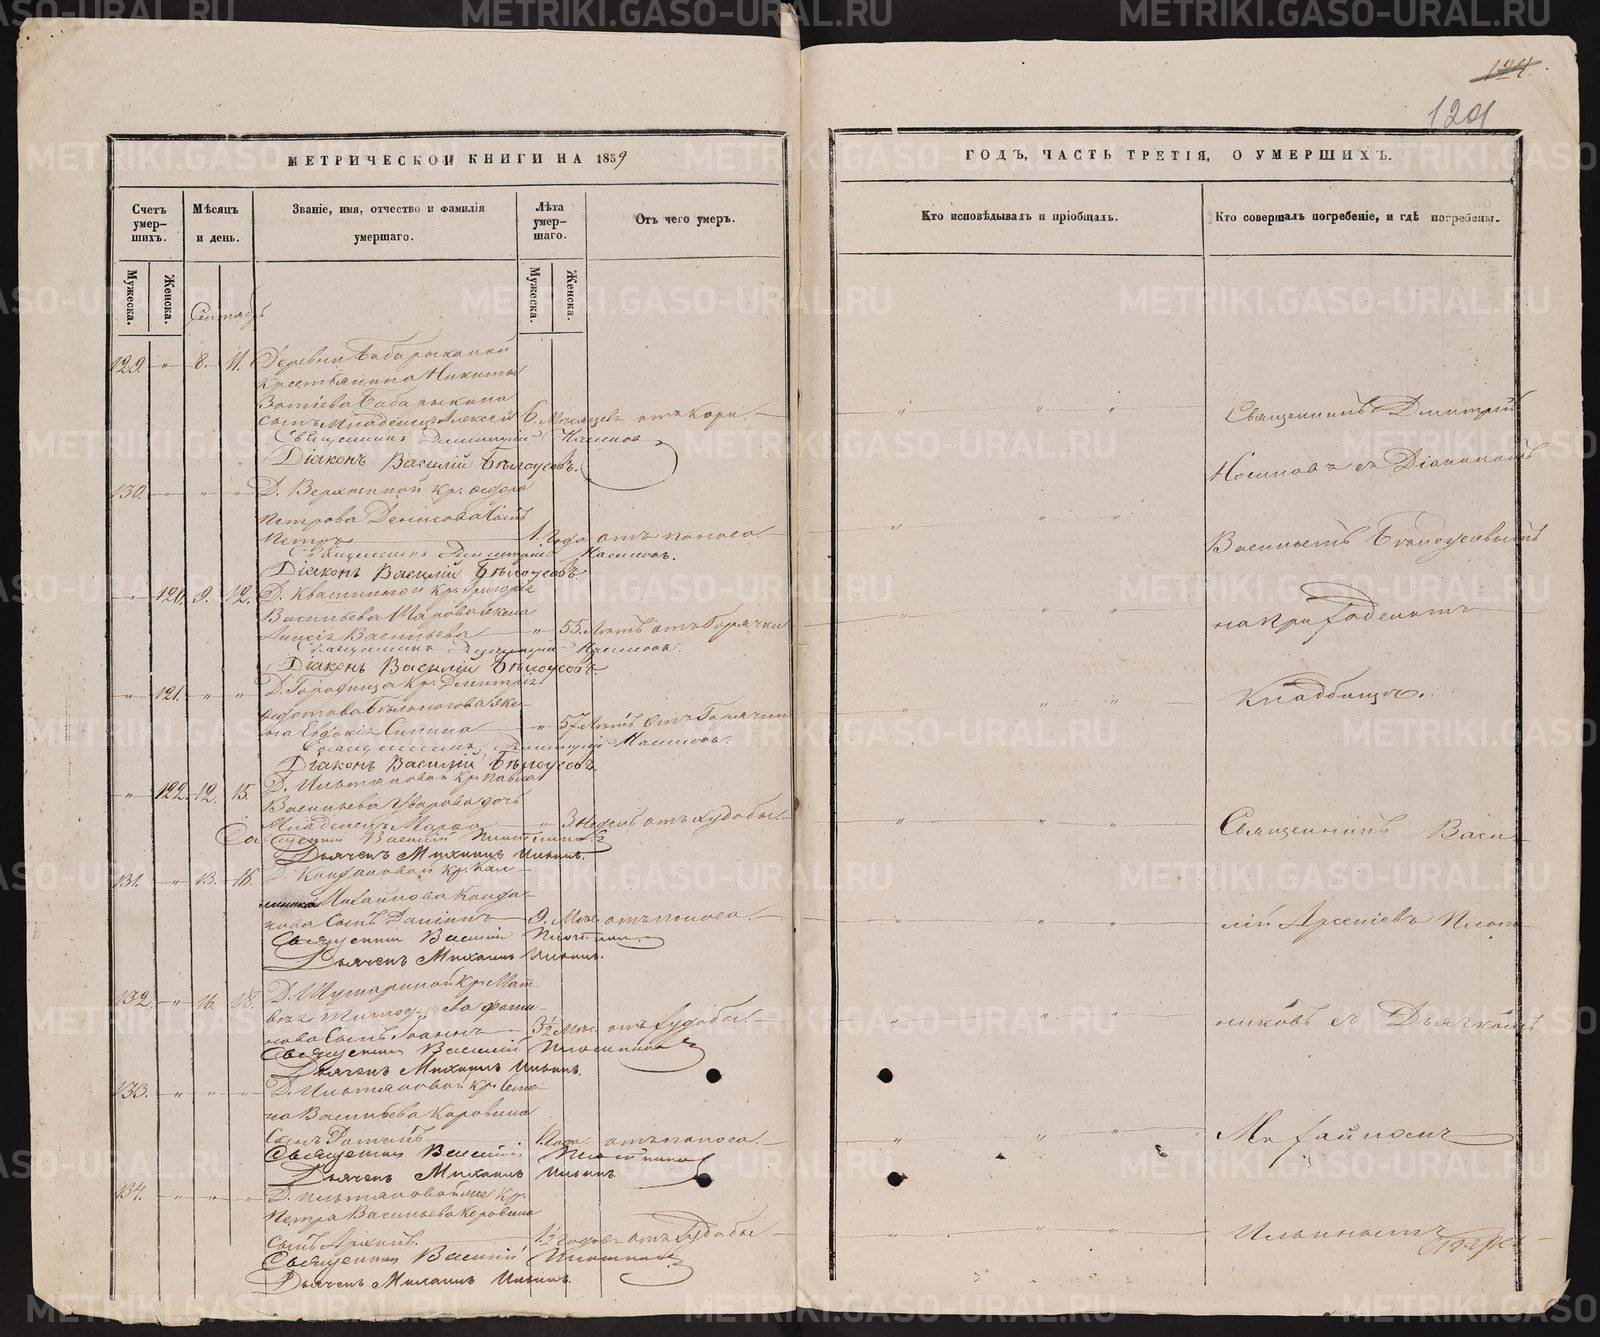 124.
129
МЕТРИЧЕСКОЙ КНИГИ НА 1859
ГОДЪ, ЧАСТЬ ТРЕТІЯ, О УМЕРШИХЪ.
Счетъ умер-шихъ.
Мѣсяцъ и день.
Званіе, имя, отчество и фамилія умершаго.
Лѣта умер-шаго.
Отъ чего умеръ.
Кто исповѣдывалъ и пріобщалъ.
Кто совершалъ погребеніе, и гдѣ погребены.
Мужеска.
Женска.
Мужеска.
Женска.
Сентябрь
129. " 8. 11. Деревни Бабарыкиной
крестьянина Никиты
Зотіева Бабарыкина
сынъ Младенецъ Алексій 6. Мѣсяцевъ отъ Кори
Священникъ Димитрій
Діаконъ Василій Бѣлоусовъ.
130. " " " Д. Верхней кр. Ѳедора
Петрова Денисова сынъ
Петръ 1. Года отъ поноса
Священникъ Димитрій
Діаконъ Василій Бѣлоусовъ.
" 120. 9. 12. Д. Квашниной кр. Григорія
Васильева Шарова жена
Васильева " 55 Лѣтъ отъ Горячки
Священникъ Димитрій
Діаконъ Василій Бѣлоусовъ.
" 121. " " Д. Городища Кр. Дмитрія
Ѳедотова Бѣлоногова же-
на Евдокія " 57 Лѣтъ отъ Горячки
Священникъ Димитрій
Діаконъ Василій Бѣлоусовъ.
" 122. 12. 15. Д. Ильтяковой кр. Павла
Васильева Уварова дочь
Младенецъ Марѳа " 3 Недель отъ худобы
Священникъ Василій Плотниковъ
Дьячекъ Михаилъ Ильинъ.
131. " 13. 16. Д. Кондаковой кр. Кал-
линика Михайлова Конда-
кова сынъ Даніилъ 9. Мѣс. отъ поноса.
Священникъ Василій Плотниковъ
Дьячекъ Михаилъ Ильинъ.
132. " 16. 18. Д. Шумариной кр. Мат-
сынъ Іоаннъ 3½ Мѣс. отъ худобы.
Священникъ Василій Плотниковъ
Дьячекъ Михаилъ Ильинъ.
133. " " " Д. Ильтяковой кр. Семе-
на Васильева Коровина
сынъ 1. Года отъ поноса.
Священникъ Василій Плотниковъ
Дьячекъ Михаилъ Ильинъ
134. " " " Д. Ильтяковой кр.
Петра Васильева Коровина
сынъ Архипъ 1½ годовъ отъ худобы
Священникъ Василій Плотниковъ
Дьячекъ Михаилъ Ильинъ.
Священникъ Дмитрій
съ Діакономъ
Василіемъ Бѣлоусовымъ
на приходскомъ
Кладбищѣ.
Священникъ Васи-
лій Арсеніевъ Плот-
никовъ съ Дьячкомъ
Михайломъ
Ильинымъ
METRIKI.GASO-URAL.RU